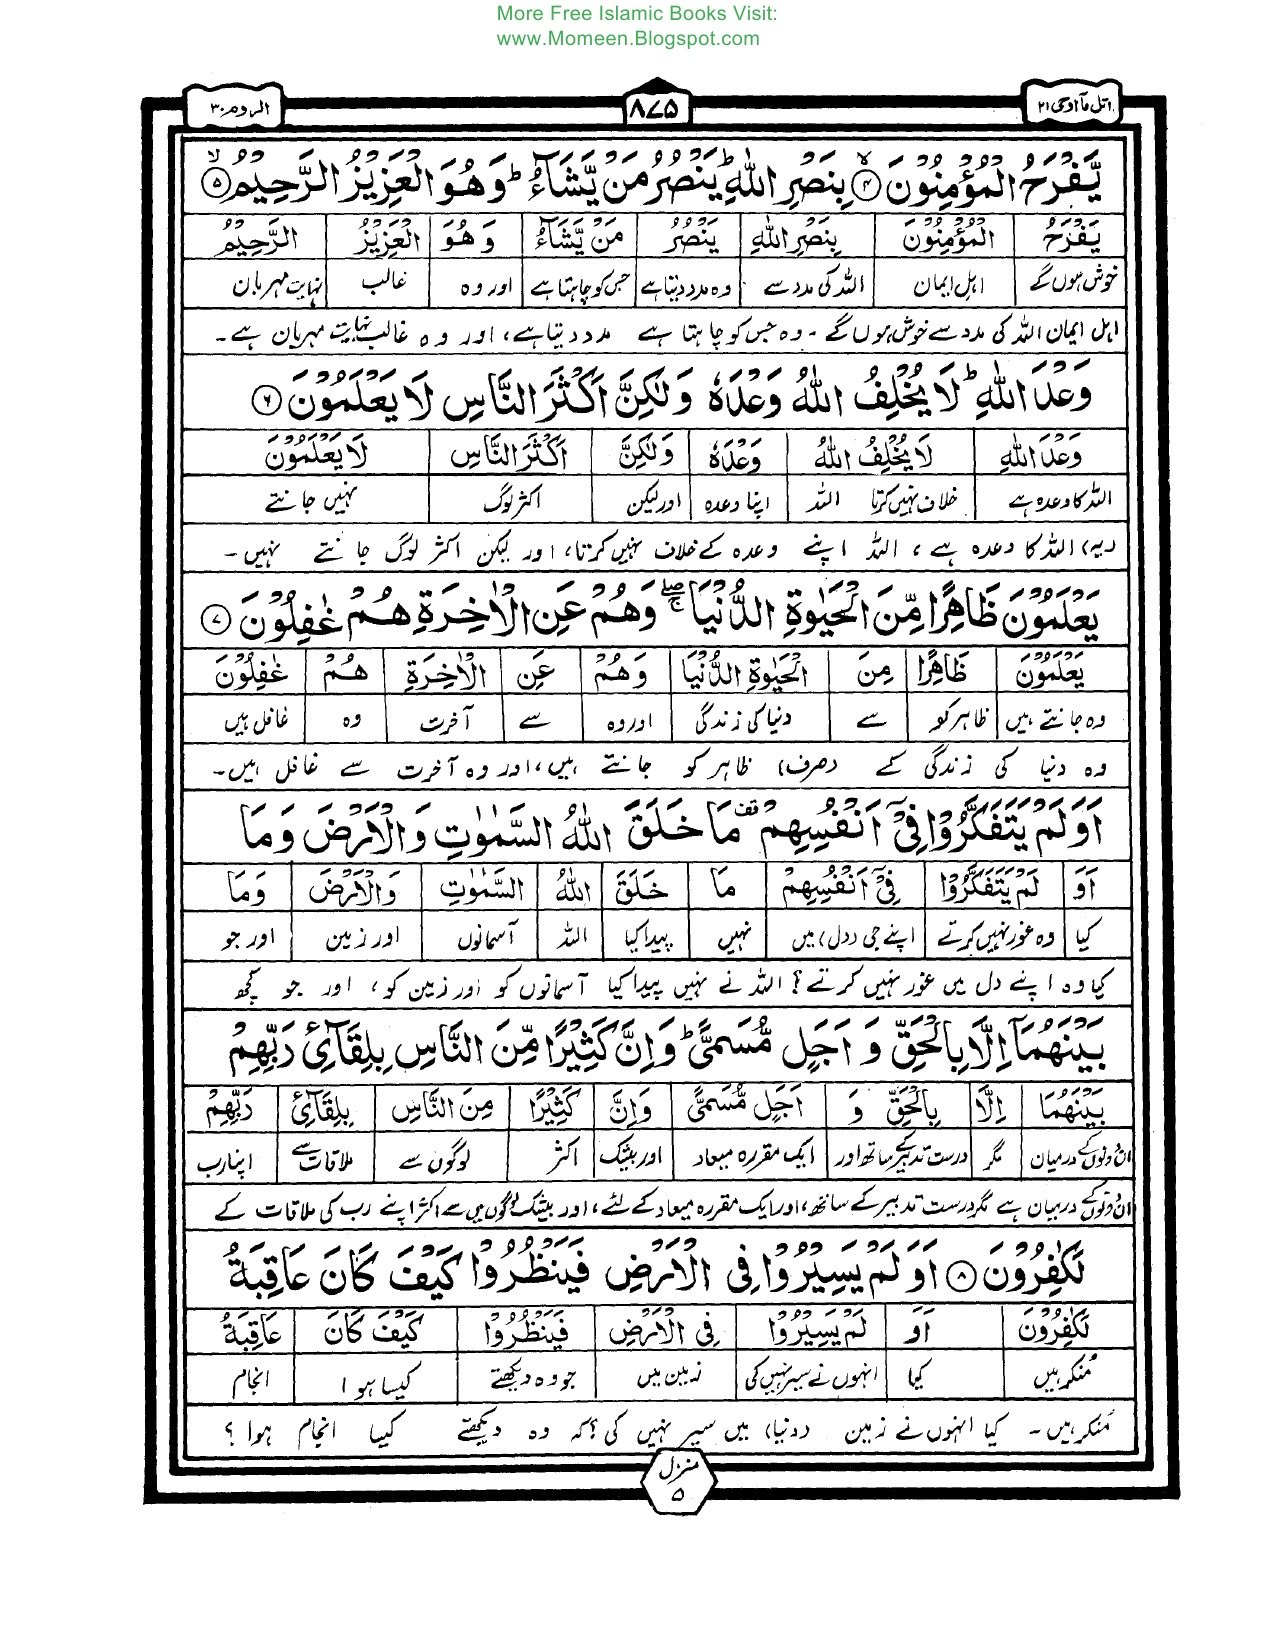 More Free Islamic Books Visit:
www.Momeen.Blogspot.com
اتل مآ اوحی ۲۱ ۸۷۵ الروم ۳۰
يَّفْرَحُ الْمُؤْمِنُوْنَ ۙ﴿۴﴾ بِنَصْرِ اللّٰهِ ؕ يَنْصُرُ مَنْ يَّشَآءُ ؕ وَهُوَ الْعَزِيْزُ الرَّحِيْمُ ۙ﴿۵﴾
يَفْرَحُ الْمُؤْمِنُوْنَ بِنَصْرِ اللّٰهِ يَنْصُرُ مَنْ يَّشَآءُ وَهُوَ الْعَزِيْزُ الرَّحِيْمُ
خوش ہوں گے اہلِ ایمان اللہ کی مدد سے وہ مدد دیتا ہے جس کو چاہتا ہے اور وہ غالب نہایت مہربان
اہل ایمان اللہ کی مدد سے خوش ہوں گے ۔ وہ جس کو چاہتا ہے مدد دیتا ہے، اور وہ غالب نہایت مہربان ہے ۔
وَعْدَ اللّٰهِ ؕ لَا يُخْلِفُ اللّٰهُ وَعْدَهٗ وَلٰكِنَّ اَكْثَرَ النَّاسِ لَا يَعْلَمُوْنَ ﴿۶﴾
وَعْدَ اللّٰهِ لَا يُخْلِفُ اللّٰهُ وَعْدَهٗ وَلٰكِنَّ اَكْثَرَ النَّاسِ لَا يَعْلَمُوْنَ
اللہ کا وعدہ ہے خلاف نہیں کرتا اللہ اپنا وعدہ اور لیکن اکثر لوگ نہیں جانتے
(یہ) اللہ کا وعدہ ہے، اللہ اپنے وعدہ کے خلاف نہیں کرتا، اور لیکن اکثر لوگ جانتے نہیں ۔
يَعْلَمُوْنَ ظَاهِرًا مِّنَ الْحَيٰوةِ الدُّنْيَا ۖۚ وَهُمْ عَنِ الْاٰخِرَةِ هُمْ غٰفِلُوْنَ ﴿۷﴾
يَعْلَمُوْنَ ظَاهِرًا مِنَ الْحَيٰوةِ الدُّنْيَا وَهُمْ عَنِ الْاٰخِرَةِ هُمْ غٰفِلُوْنَ
وہ جانتے ہیں ظاہر کو سے دنیا کی زندگی اور وہ سے آخرت وہ غافل ہیں
وہ دنیا کی زندگی کے (صرف) ظاہر کو جانتے ہیں، اور وہ آخرت سے غافل ہیں ۔
اَوَلَمْ يَتَفَكَّرُوْا فِيْٓ اَنْفُسِهِمْ ۟ مَا خَلَقَ اللّٰهُ السَّمٰوٰتِ وَالْاَرْضَ وَمَا
اَوَ لَمْ يَتَفَكَّرُوْا فِيْٓ اَنْفُسِهِمْ مَا خَلَقَ اللّٰهُ السَّمٰوٰتِ وَالْاَرْضَ وَمَا
کیا وہ غور نہیں کرتے اپنے جی (دل) میں نہیں پیدا کیا اللہ آسمانوں اور زمین اور جو
کیا وہ اپنے دل میں غور نہیں کرتے؟ اللہ نے نہیں پیدا کیا آسمانوں کو اور زمین کو، اور جو کچھ
بَيْنَهُمَآ اِلَّا بِالْحَقِّ وَاَجَلٍ مُّسَمًّى ؕ وَاِنَّ كَثِيْرًا مِّنَ النَّاسِ بِلِقَآئِ رَبِّهِمْ
بَيْنَهُمَا اِلَّا بِالْحَقِّ وَ اَجَلٍ مُّسَمًّى وَاِنَّ كَثِيْرًا مِنَ النَّاسِ بِلِقَآئِ رَبِّهِمْ
ان دونوں کے درمیان مگر درست تدبیر کے ساتھ اور ایک مقررہ میعاد اور بیشک اکثر لوگوں سے ملاقات سے اپنا رب
ان دونوں کے درمیان ہے مگر درست تدبیر کے ساتھ، اور ایک مقررہ میعاد کے لئے، اور بیشک لوگوں میں سے اکثر اپنے رب کی ملاقات کے
لَكٰفِرُوْنَ ﴿۸﴾ اَوَلَمْ يَسِيْرُوْا فِي الْاَرْضِ فَيَنْظُرُوْا كَيْفَ كَانَ عَاقِبَةُ
لَكٰفِرُوْنَ اَوَ لَمْ يَسِيْرُوْا فِي الْاَرْضِ فَيَنْظُرُوْا كَيْفَ كَانَ عَاقِبَةُ
منکر ہیں کیا انہوں نے سیر نہیں کی زمین میں جو وہ دیکھتے کیسا ہوا انجام
منکر ہیں ۔ کیا انہوں نے زمین (دنیا) میں سیر نہیں کی؟ کہ وہ دیکھتے کیسا انجام ہوا ؟
منزل
۵